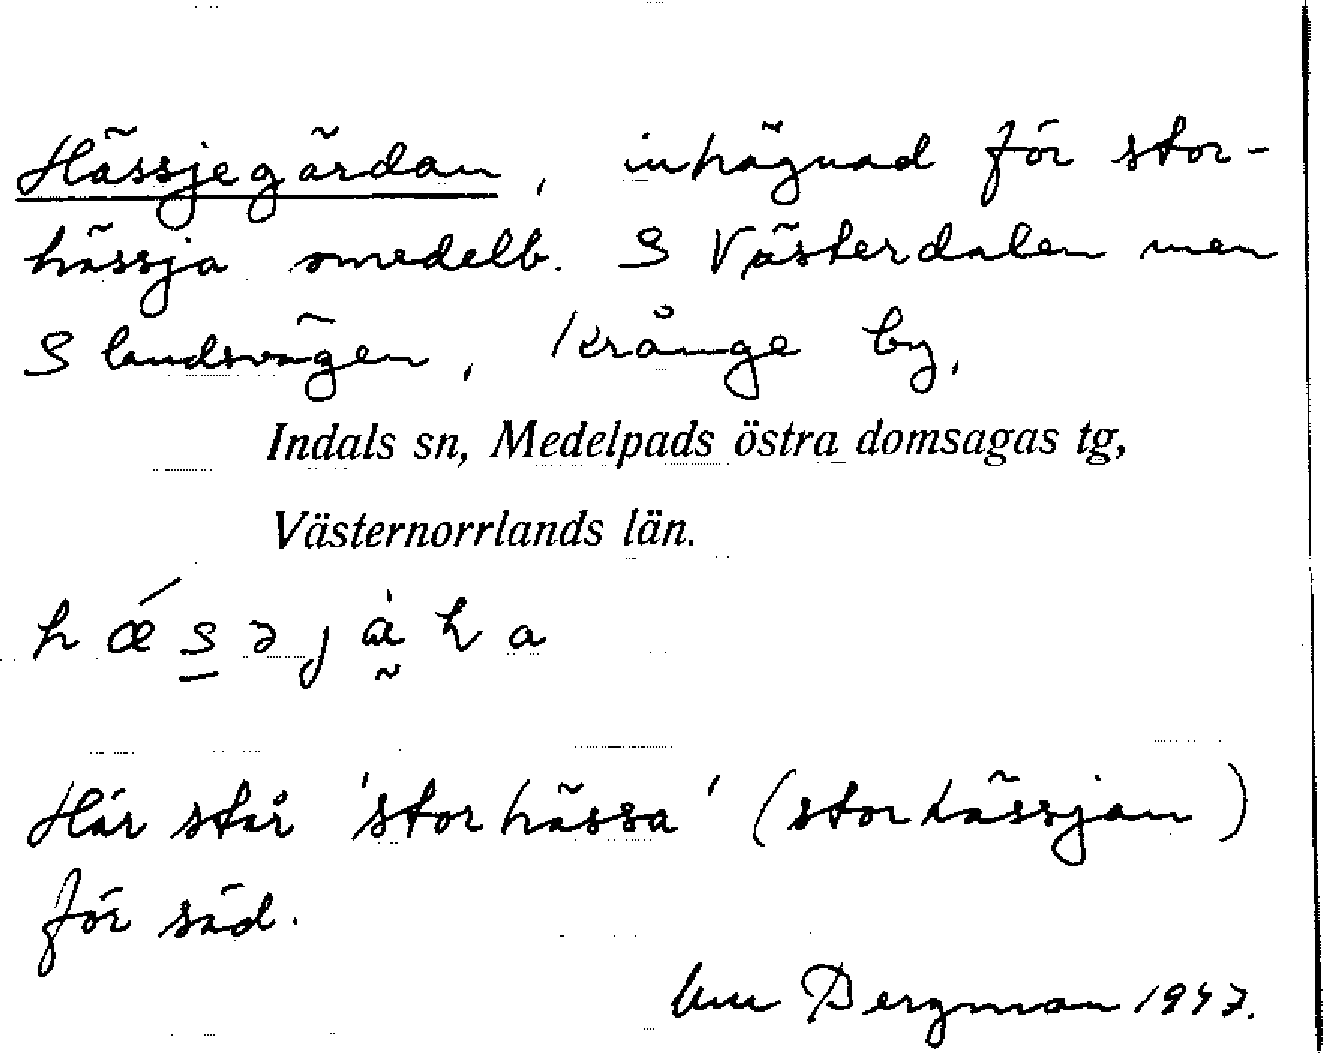 Hässjegärdan, inhägnad för stor-
hässja omedelb. S Västerdalen men
S landsvägen, Krånge by,
Indals sn, Medelpads östra domsagas tg,
Västernorrlands län.
Här står 'storhässa' (storhässjan)
för säd.
Bergman 1947.